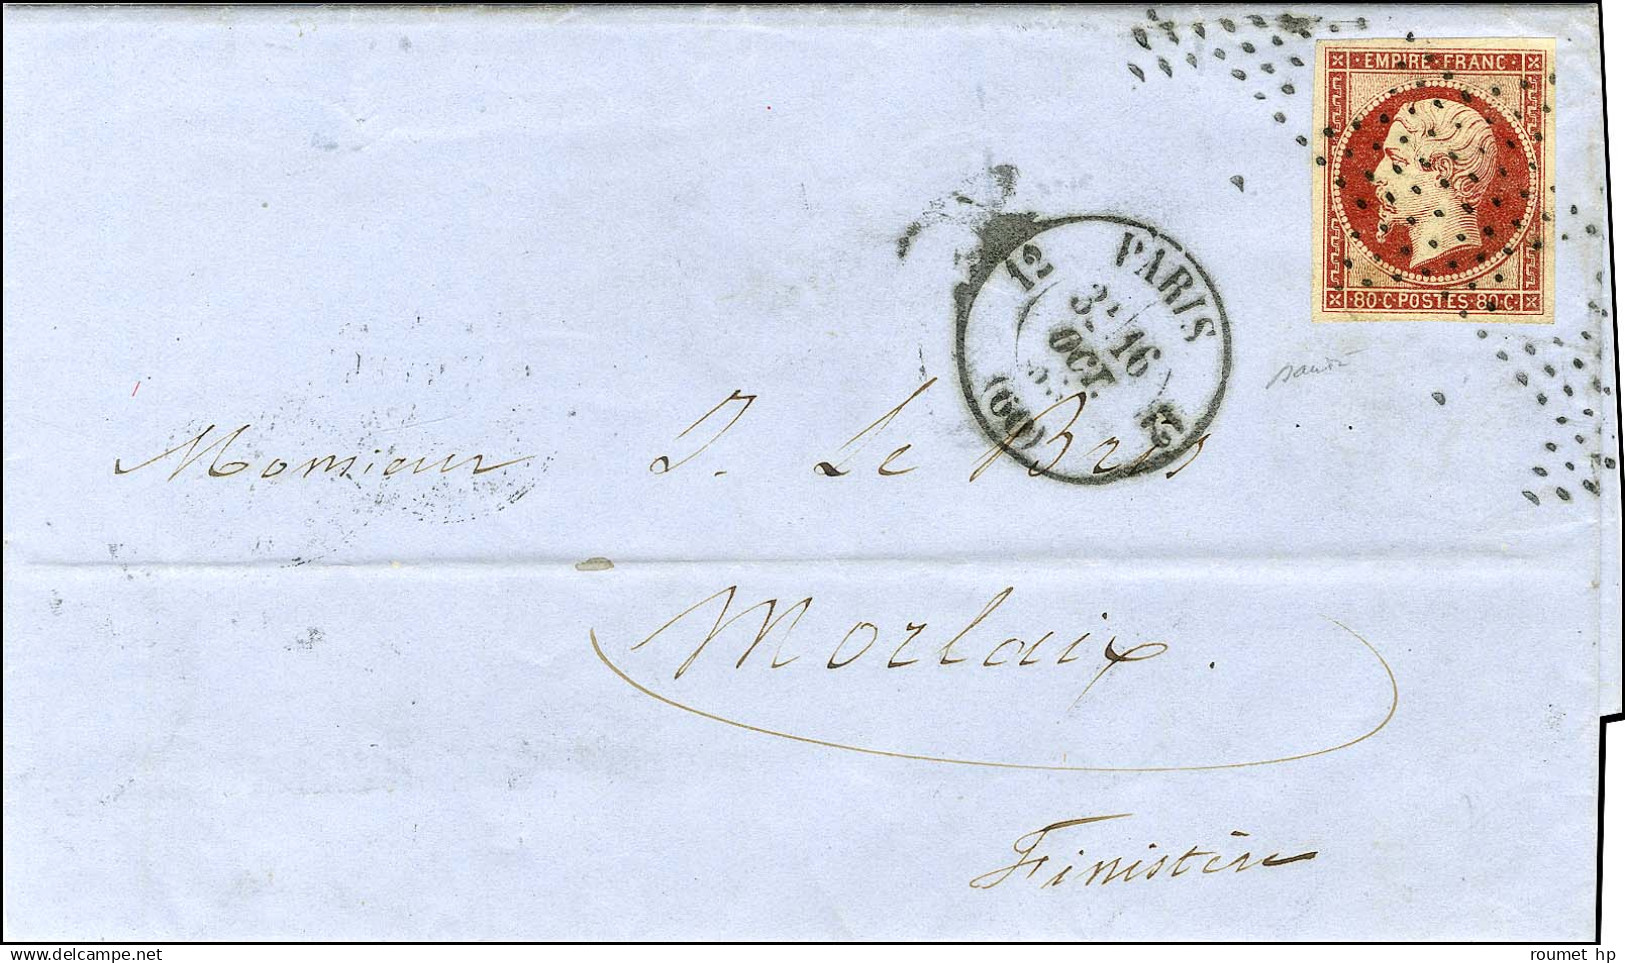 EMPIRE · FRANC ·
80 · C · POSTES · 80 · C ·
PARIS
12
3E
16
OCT
12
(60)
Monsieur J. Le Bris
Morlaix.
Finistère
roumet hp